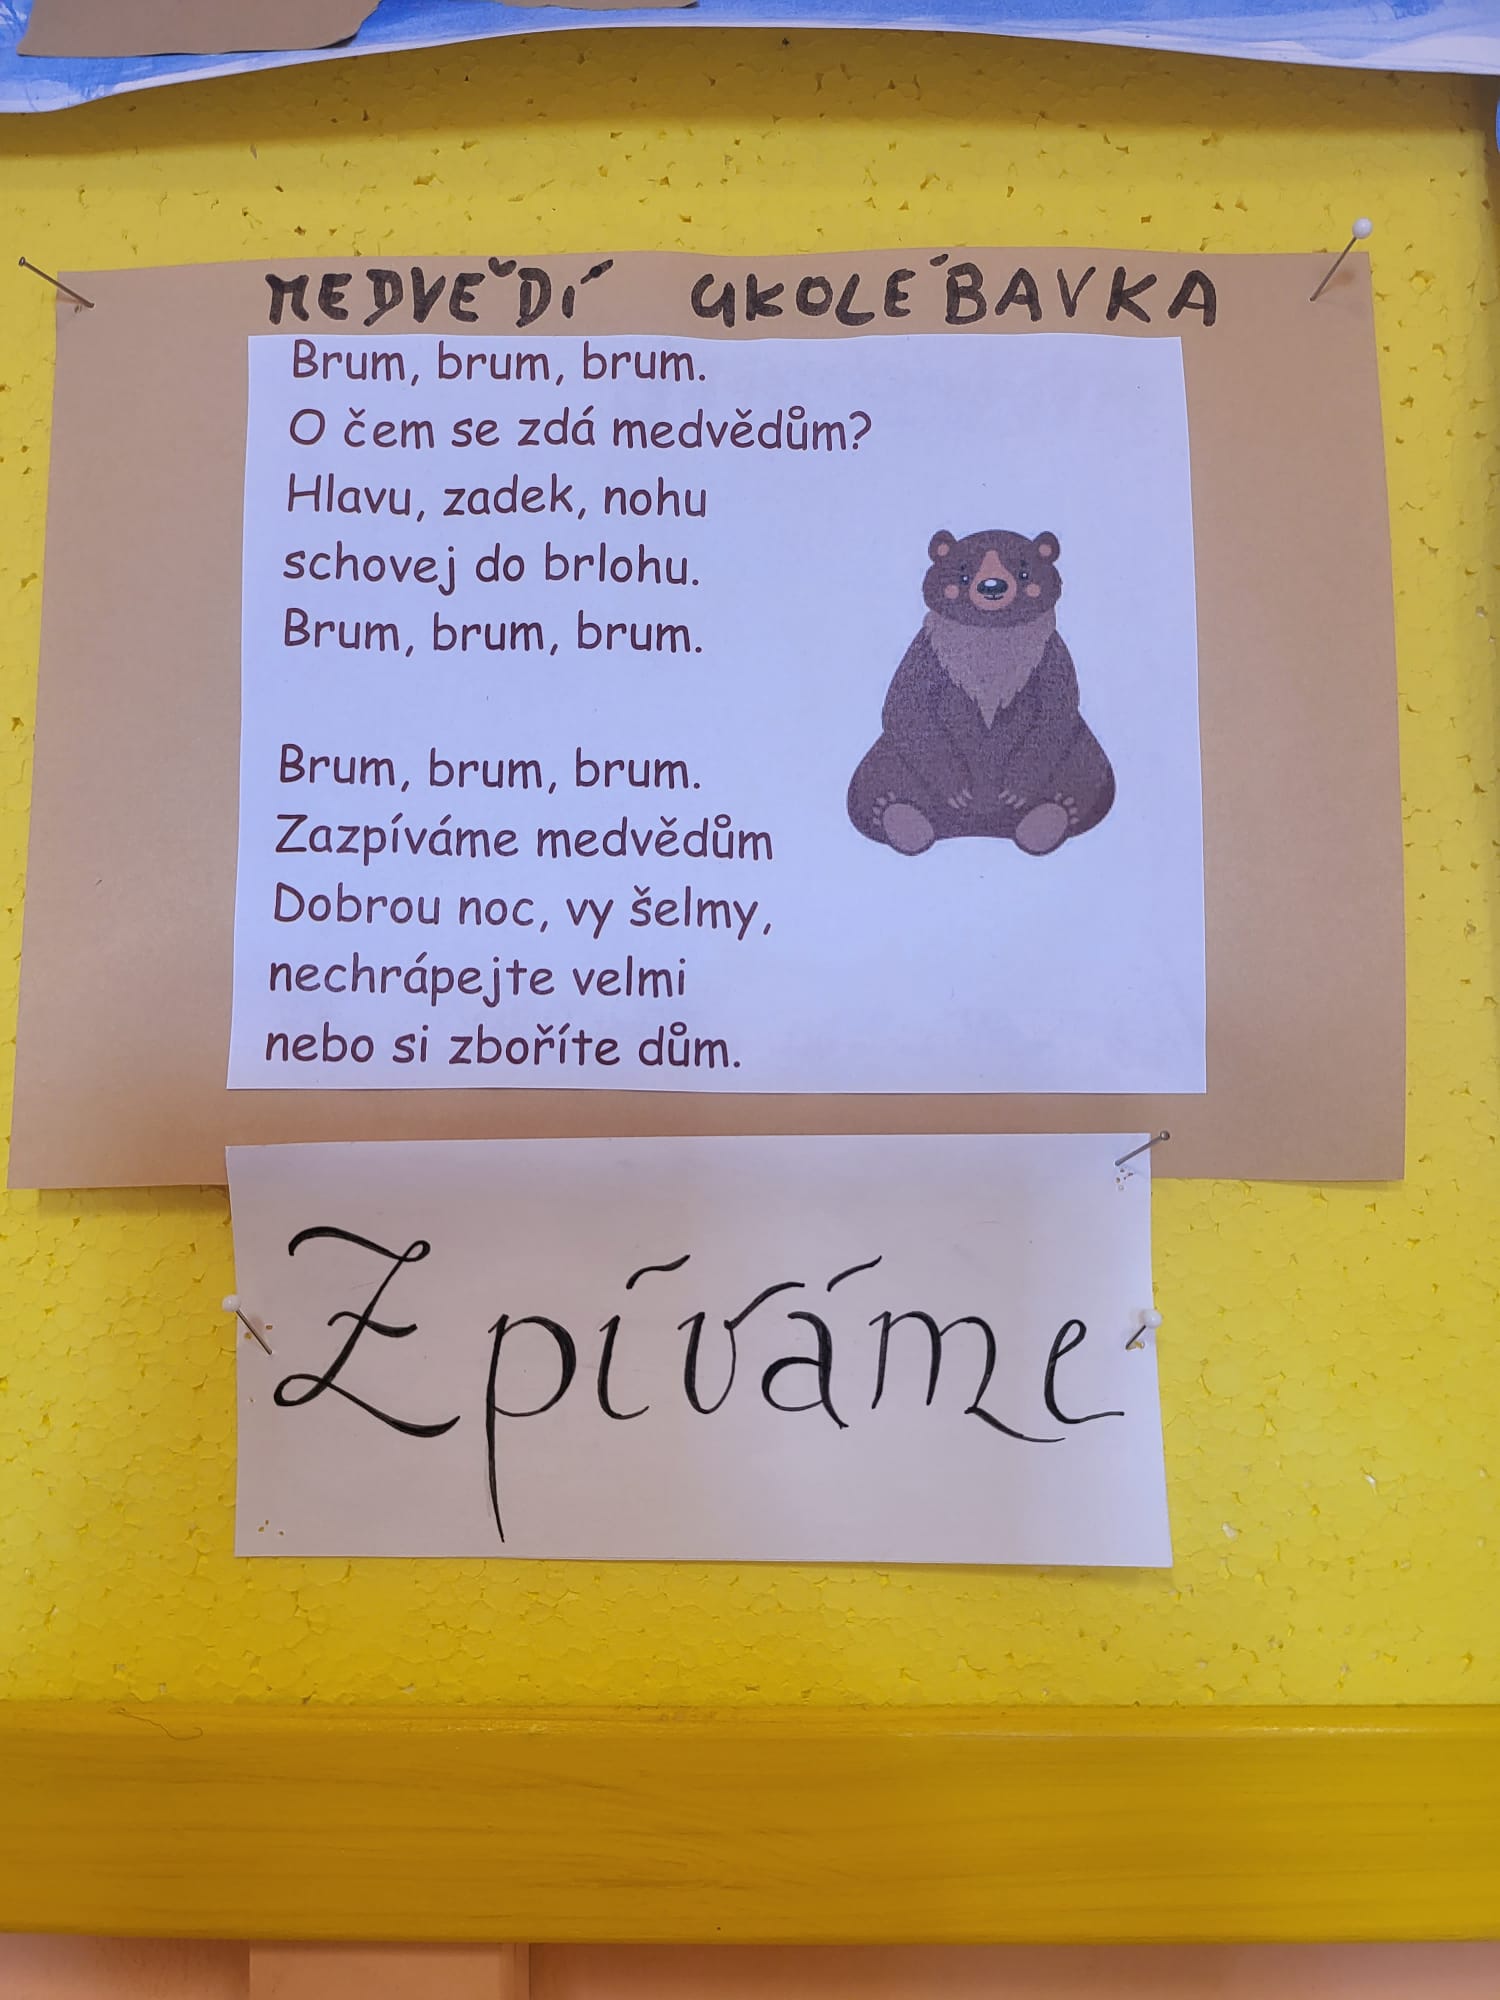 MEDVĚDÍ UKOLÉBAVKA
Brum, brum, brum.
O čem se zdá medvědům?
Hlavu, zadek, nohu
schovej do brlohu.
Brum, brum, brum.
Brum, brum, brum.
Zazpíváme medvědům
Dobrou noc, vy šelmy,
nechrápejte velmi
nebo si zboříte dům.
Zpíváme